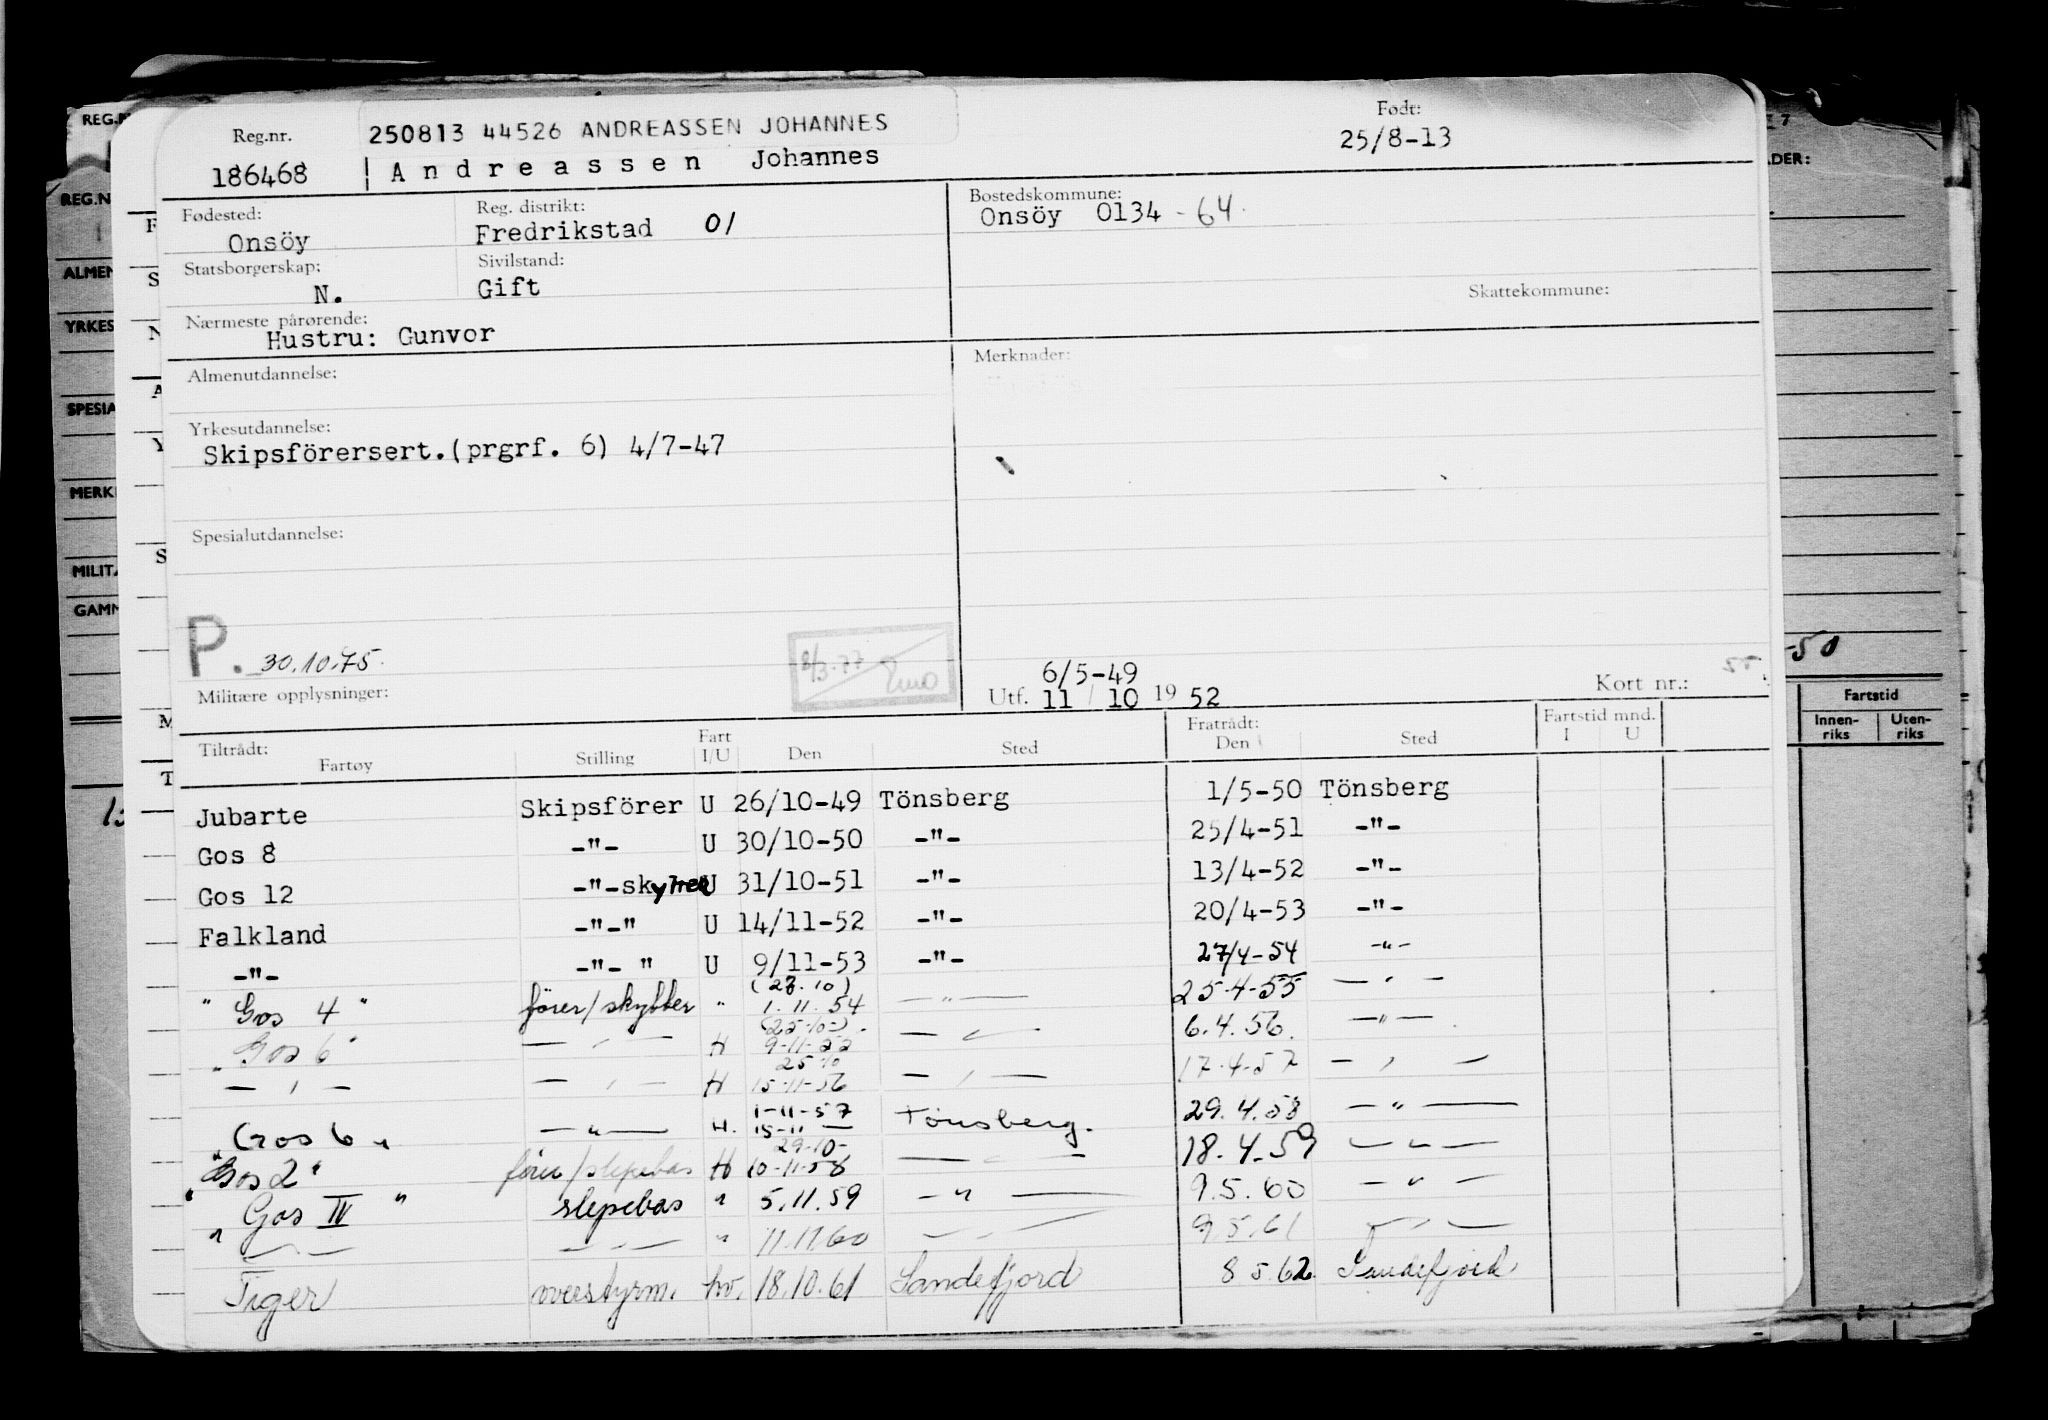 REG.N
Reg.nr. 250813 44526 ANDREASSEN JOHANNES Født:
186468 Andreassen Johannes 25/8-13
Fødested: Reg. distrikt: Bostedskommune:
Onsöy Fredrikstad 01 Onsöy 0134 - 64.
Statsborgerskap: Sivilstand:
N. Gift Skattekommune:
Nærmeste pårørende:
Hustru: Gunvor
Almenutdannelse: Merknader:
Yrkesutdannelse:
Skipsförersert.(prgrf. 6) 4/7-47
Spesialutdannelse:
P. 30.10.75. 8/3-77
Militære opplysninger: 6/5-49
Utf. 11 / 10 19 52 Kort nr.:
Tiltrådt: Fratrådt:
Fartøy Stilling Fart I/U Den Sted Den Sted Fartstid mnd. I U
Jubarte Skipsförer U 26/10-49 Tönsberg 1/5-50 Tönsberg
Gos 8 -"- U 30/10-50 -"- 25/4-51 -"-
Gos 12 -"-skytter U 31/10-51 -"- 13/4-52 -"-
Falkland -"-" U 14/11-52 -"- 20/4-53 -"-
-"- -"- " U 9/11-53 -"- 27/4-54 -"-
" Gos 4 " förer/skytter " (23.10) 1.11.54 -"- 25-4-55 -"-
" Gos 6 " -"- H (25-10-) 9-11-55 -"- 6.4.56. -"-
-"- -"- H 25-10 15-11-56 -"- 17-4-57 -"-
" Gos 6 " -"- H. 1-11-57 15-11 - Tönsberg. 29.4.58 -"-
" Gos 2 " förer/slepebas H 29-10- 10-11-58 -"- 18.4.59 -"-
" Gos IV " slepebas " 5.11.59 -"- 9.5.60 -"-
-"- -"- " 11.11.60 -"- 9.5.61 -"-
Tiger overstyrm. hv. 18.10.61 Sandefjord 8 5.62. Sandefjord
REG.N
ALMEN
YRKES
SPESIA
MERK
MILIT
GAMM
-50
Fartstid
Innen-riks Uten-riks